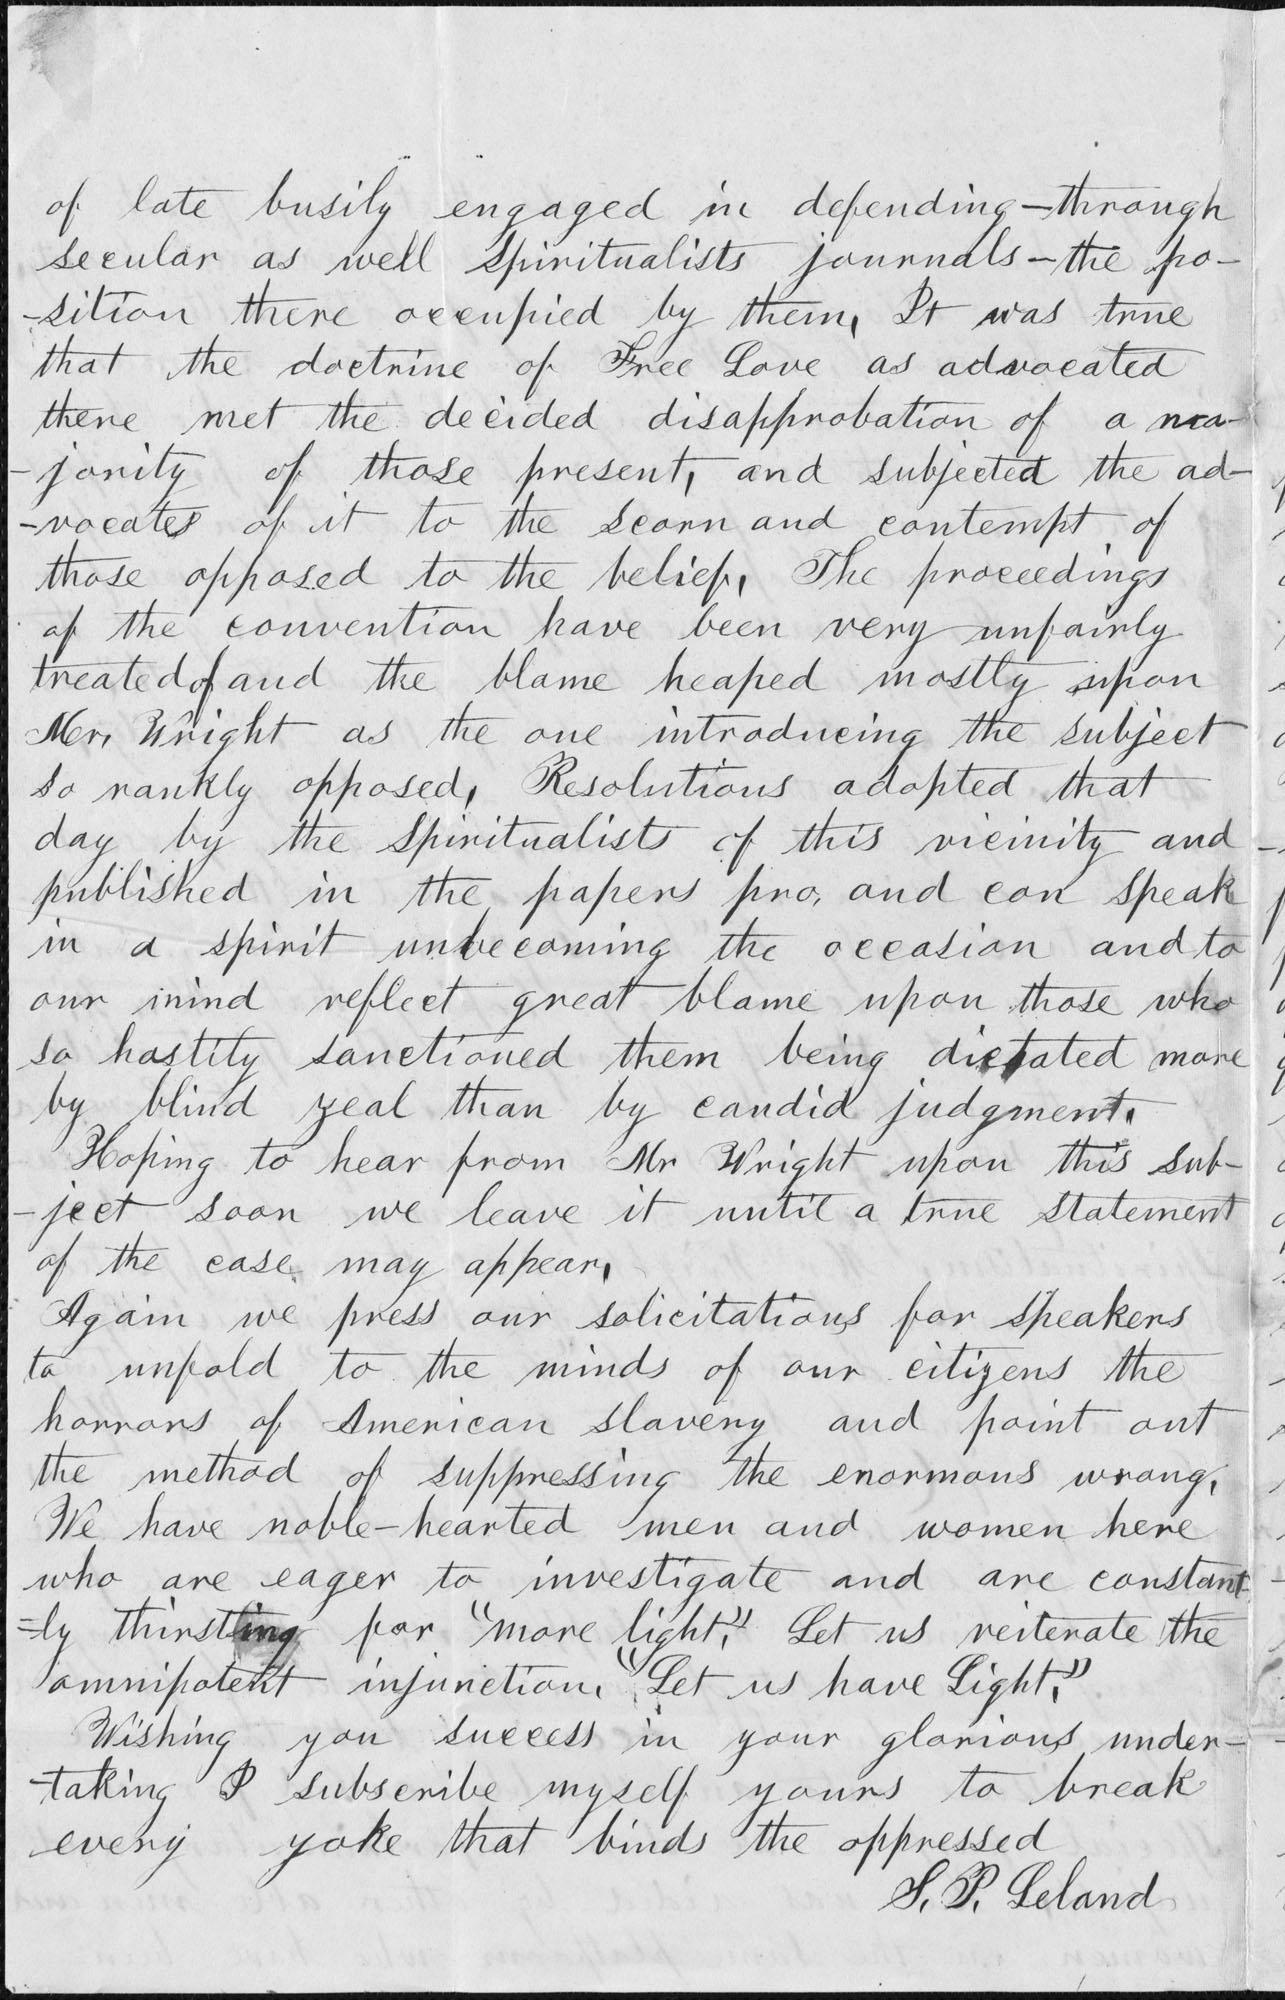 of late busily engaged in defending—through
secular as well Spiritualists journals—the po-
-sition there occupied by them, It was true
that the doctrine of Free Love as advocated
there met the decided disapprobation of a ma-
-jority of those present, and subjected the ad-
-vocates of it to the scorn and contempt of
those opposed to the belief, The proceedings
of the convention have been very unfairly
treated of and the blame heaped mostly upon
Mr, Wright as the one introducing the subject
so rankly opposed, Resolutions adopted that
day by the Spiritualists of this vicinity and
published in the papers pro, and con speak
in a spirit unbecoming the occasion and to
our mind reflect great blame upon those who
so hastily sanctioned them being dictated more
by blind zeal than by candid judgment.
Hoping to hear from Mr Wright upon this sub-
-ject soon we leave it until a true statement
of the case may appear,
Again we press our solicitations for speakers
to unfold to the minds of our citizens the
horrors of American slavery and point out
the method of suppressing the enormous wrong,
We have noble-hearted men and women here
who are eager to investigate and are constant-
=ly thirsting for "more light," Let us reiterate the
omnipotent injunction, "Let us have Light,"
Wishing you success in your glorious under-
-taking I subscribe myself yours to break
every yoke that binds the oppressed
S. P. Leland